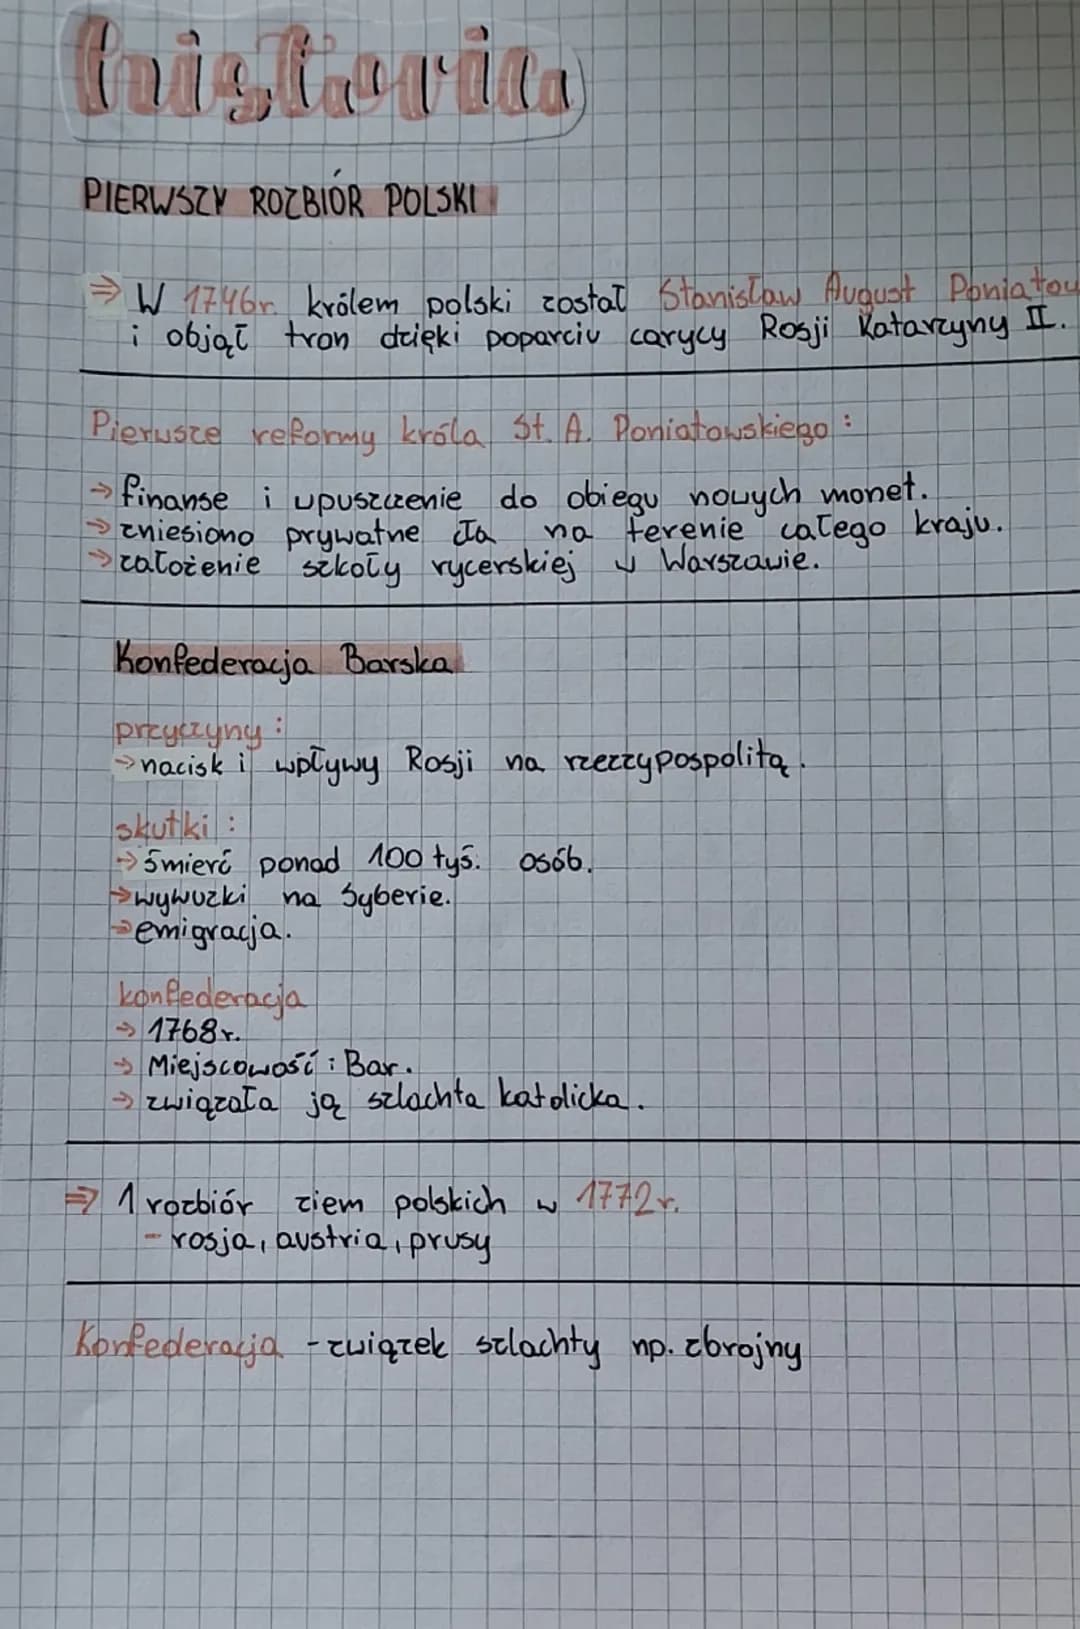 PIERWSZY ROZBIÓR POLSKI
⇒ W 1746r. królem polski został Stanisław August Poniatow
i objął tron dzięki poparciu carycy Rosji Katarzyny II.
Pierwsze reformy króla St. A. Poniatowskiego :
→ finanse i wpuszczenie do obiegu nowych monet.
→ zniesiono prywatne cła na terenie całego kraju.
→ założenie szkoły rycerskiej w Warszawie.
Konfederacja Barska
przyczyny :
→ nacisk i wpływy Rosji na rzeczypospolitą.
skutki :
→ śmierć ponad 100 tyś. osób.
→ wywuzki na Syberie.
→ emigracja.
konfederacja
→ 1768r.
→ Miejscowość : Bar.
→ związała ją szlachta katolicka.
⇒ 1 rozbiór ziem polskich w 1772r.
- rosja, austria, prusy
Konfederacja - związek szlachty np. zbrojny